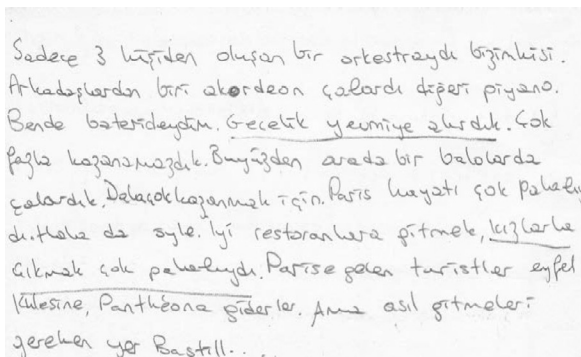 Sadece 3 kişiden oluşan bir orkestraydı bizimkisi.
Arkadaşlardan biri akordeon çalardı diğeri piyano.
Bende baterideydim. Gecelik yevmiye alırdık. Çok
fazla kazanamazdık. Buyüzden arada bir balolarda
çalardık. Dahaçok kazanmak için. Paris hayatı çok pahalıy
dı. Hala da öyle. İyi restoranlara gitmek, kızlarla
çıkmak çok pahalıydı. Parise gelen turistler eyfel
kulesine, Panthéona giderler. Ama asıl gitmeleri
gereken yer Bastill...